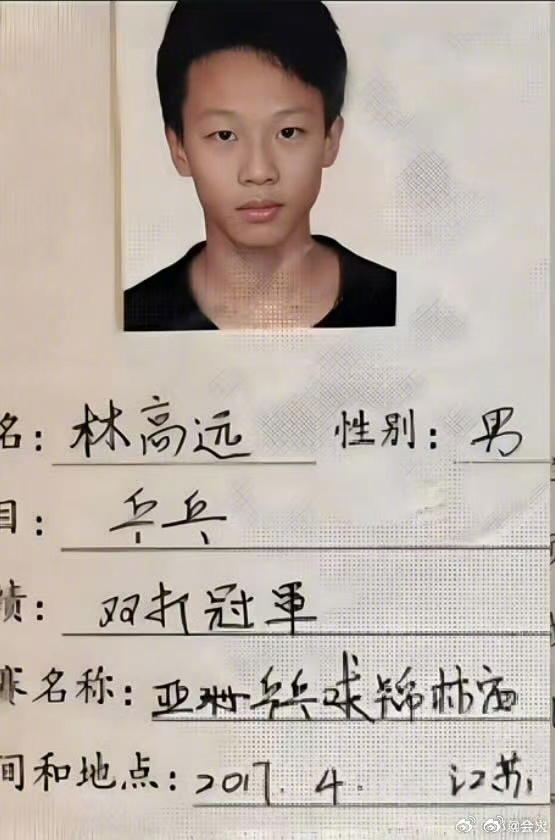 名：林高远 性别：男
目：乒乓
绩：双打冠軍
名称：亚洲乒乓球锦标赛
间和地点：2017.4. 江苏